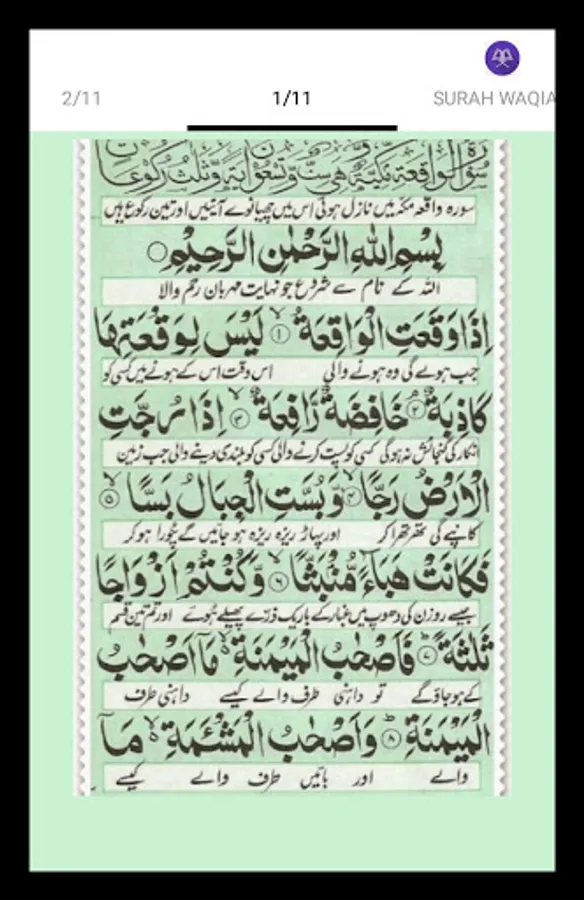 2/11 1/11 SURAH WAQIA
سورة الواقعة مكية وهي ست وتسعون اية وثلث ركوعات
سورہ واقعہ مکہ میں نازل ہوئی اس میں چھیانوے آیتیں اور تین رکوع ہیں
بِسْمِ اللهِ الرَّحْمٰنِ الرَّحِيْمِ
اللہ کے نام سے شروع جو نہایت مہربان رحم والا
اِذَا وَقَعَتِ الْوَاقِعَةُ ۙ﴿۱﴾ لَيْسَ لِوَقْعَتِهَا
جب ہولے گی وہ ہونے والی اس وقت اس کے ہونے میں کسی کو
كَاذِبَةٌ ۘ﴿۲﴾ خَافِضَةٌ رَّافِعَةٌ ۙ﴿۳﴾ اِذَا رُجَّتِ
انکار کی گنجائش نہ ہوگی کسی کو پست کرنے والی کسی کو بلندی دینے والی جب زمین
الْاَرْضُ رَجًّا ۙ﴿۴﴾ وَّبُسَّتِ الْجِبَالُ بَسًّا ۙ﴿۵﴾
کانپے گی تھرتھرا کر اور پہاڑ ریزہ ریزہ ہو جائیں گے چُورا ہو کر
فَكَانَتْ هَبَآءً مُّنْۢبَثًّا ۙ﴿۶﴾ وَّكُنْتُمْ اَزْوَاجًا
جیسے روزن کی دھوپ میں غبار کے باریک ذرّے پھیلے ہوئے اور تم تین قسم
ثَلٰثَةً ؕ﴿۷﴾ فَاَصْحٰبُ الْمَيْمَنَةِ ۙ مَاۤ اَصْحٰبُ
کے ہو جاؤ گے تو داہنی طرف والے کیسے داہنی طرف
الْمَيْمَنَةِ ؕ﴿۸﴾ وَاَصْحٰبُ الْمَشْئَمَةِ ۙ مَاۤ
والے اور بائیں طرف والے کیسے